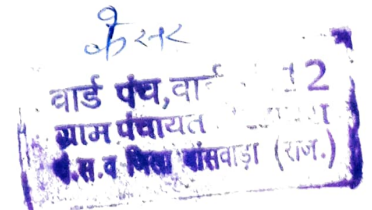 केसर
वार्ड पंच, वा 12
ग्राम पंचायत
पं.स.व जिला बांसवाड़ा (राज.)